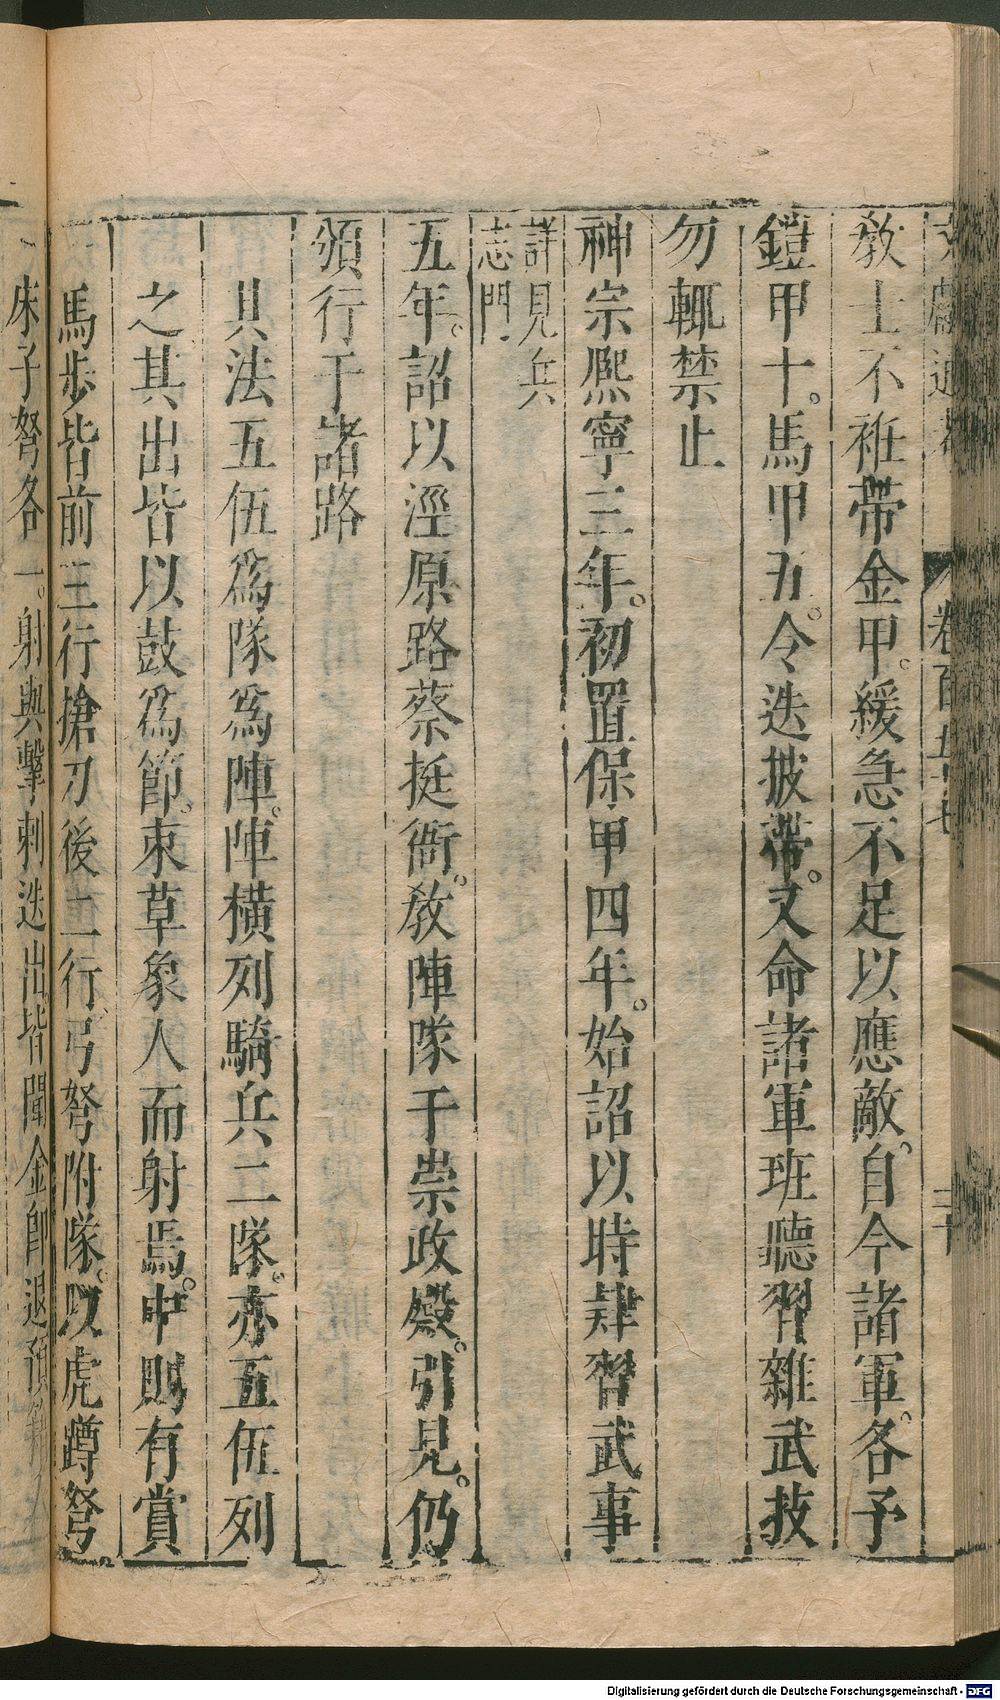 卷百五十七
教士不衽帶金甲。緩急不足以應敵。自今諸軍。各予
鎧甲十。馬甲五。令迭披帶。又命諸軍班聽習雜武技
勿輒禁止
神宗熈寧三年。初置保甲四年。始詔以時肄習武事
詳見兵
志門
五年。詔以涇原路蔡挺衙。教陣隊于崇政殿。引見。仍
頒行于諸路
具法五伍爲隊爲陣。陣橫列騎兵二隊。亦五伍列
之其出皆以鼓爲節。束草象人而射焉。中則有賞
馬步皆前三行搶刀後二行弓弩附隊。以虎蹲弩
床子弩各一。射與擊刺迭出皆聞金即退預
Digitalisierung gefördert durch die Deutsche Forschungsgemeinschaft - DFG